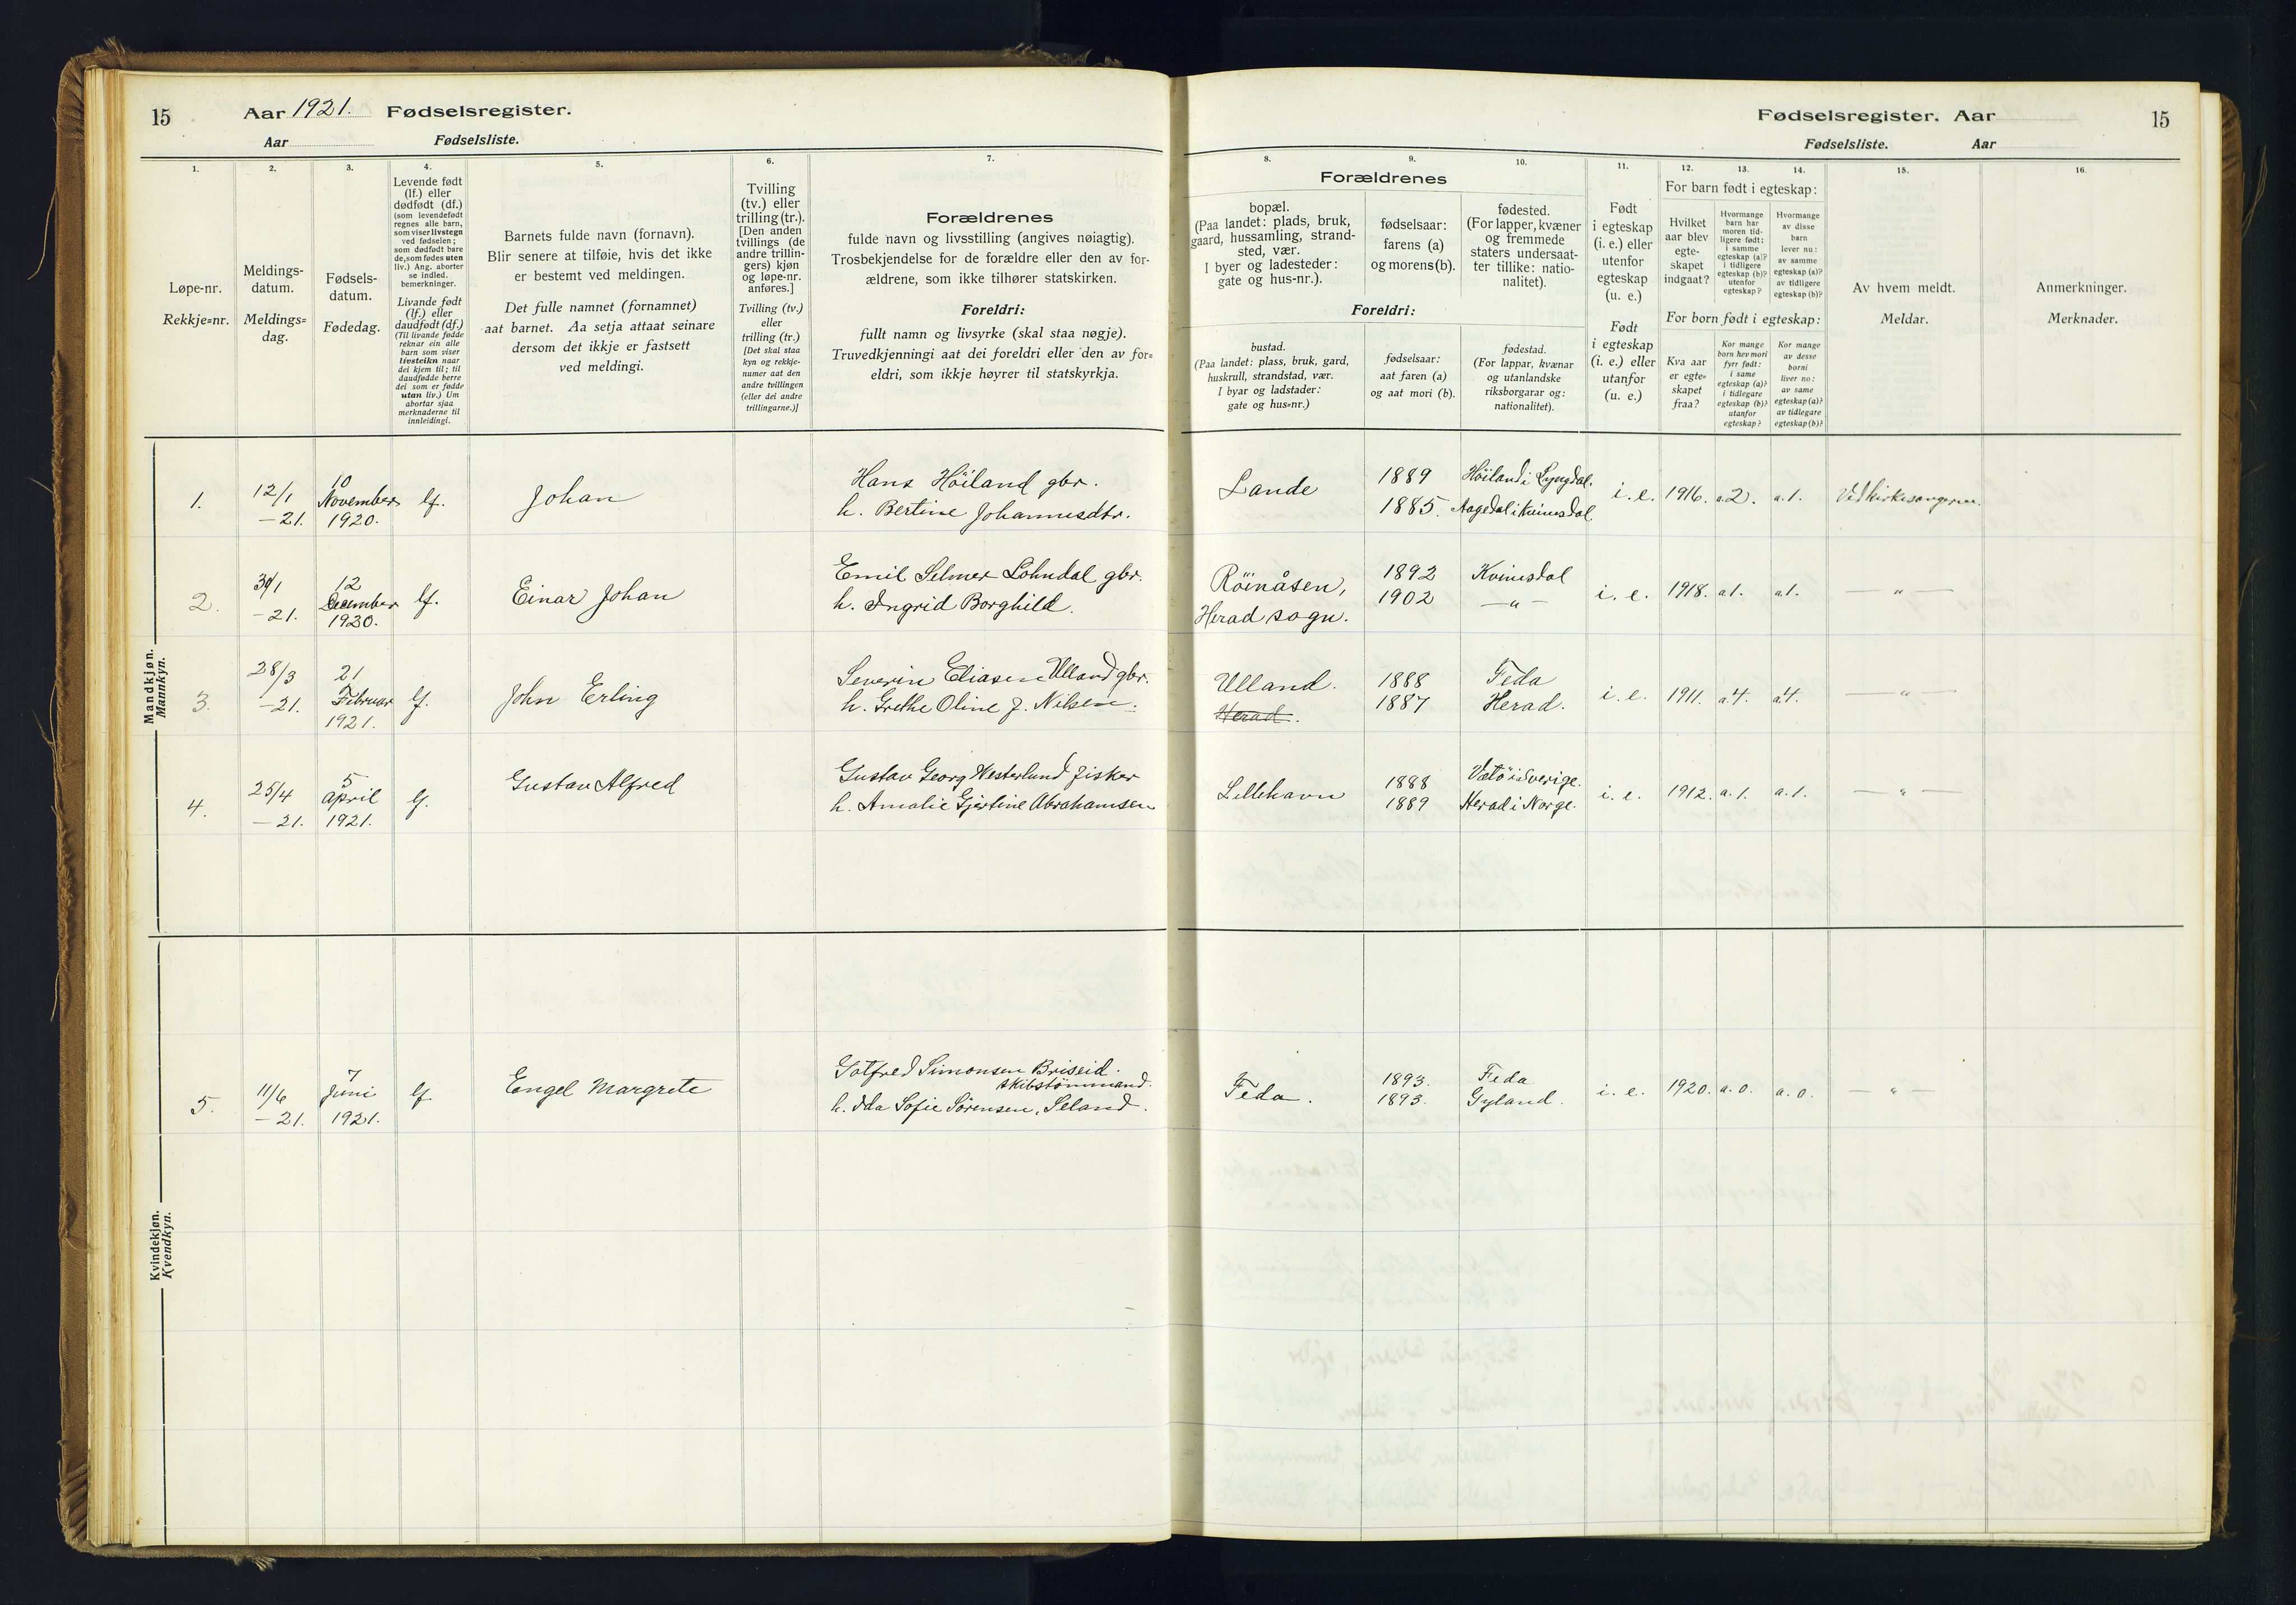 15
Aar 1921. Fødselsregister.
Aar Fødselsliste.
Fødselsregister. Aar
15
Fødselsliste. Aar
1.
2.
3.
4.
5.
6.
7.
8.
9.
10.
11.
12.
13.
14.
15.
16.
Løpe-nr.
Rekkje=nr.
Meldings-
datum.
Meldings=
dag.
Fødsels-
datum.
Fødedag.
Levende født
(lf.) eller
dødfødt (df.)
(som levendefødt
regnes alle barn,
som viser livstegn
ved fødselen;
som dødfødt bare
de, som fødes uten
liv.) Ang. aborter
se indled.
bemerkninger.
Livande født
(lf.) eller
daudfødt (df.)
(Til livande fødde
reknar ein alle
barn som viser
livsteikn naar
dei kjem til; til
daudfødde berre
dei som er fødde
utan liv.) Um
abortar sjaa
merknaderne til
innleidingi.
Barnets fulde navn (fornavn).
Blir senere at tilføie, hvis det ikke
er bestemt ved meldingen.
Det fulle namnet (fornamnet)
aat barnet. Aa setja attaat seinare
dersom det ikkje er fastsett
ved meldingi.
Tvilling
(tv.) eller
trilling (tr.).
[Den anden
tvillings (de
andre trillin-
gers) kjøn
og løpe-nr.
anføres.]
Tvilling (tv.)
eller
trilling (tr.)
[Det skal staa
kyn og rekkje-
numer aat den
andre tvillingen
(eller dei andre
trillingarne.)]
Forældrenes
fulde navn og livsstilling (angives nøiagtig).
Trosbekjendelse for de forældre eller den av for-
ældrene, som ikke tilhører statskirken.
Foreldri:
fullt namn og livsyrke (skal staa nøgje).
Truvedkjenningi aat dei foreldri eller den av for=
eldri, som ikkje høyrer til statskyrkja.
Forældrenes
bopæl.
(Paa landet: plads, bruk,
gaard, hussamling, strand-
sted, vær.
I byer og ladesteder:
gate og hus-nr.).
fødselsaar:
farens (a)
og morens (b).
fødested.
(For lapper, kvæner
og fremmede
staters undersaat-
ter tillike: natio-
nalitet).
Foreldri:
bustad.
(Paa landet: plass, bruk, gard,
huskrull, strandstad, vær.
I byar og ladstader:
gate og hus=nr.)
fødselsaar:
aat faren (a)
og aat mori (b).
fødestad.
(For lappar, kvænar
og utanlandske
riksborgarar og:
nationalitet).
Født
i egteskap
(i. e.) eller
utenfor
egteskap
(u. e.)
Født
i egteskap
(i. e.) eller
utanfor
(u. e.)
For barn født i egteskap:
Hvilket
aar blev
egte-
skapet
indgaat?
Hvormange
barn har
moren tid-
ligere født:
i samme
egteskap (a)?
i tidligere
egteskap (b)?
utenfor
egteskap?
Hvormange
av disse
barn
lever nu:
av samme
egteskap (a)?
av tidligere
egteskap (b)?
For born født i egteskap:
Kva aar
er egte=
skapet
fraa?
Kor mange
born hev mori
fyrr født:
i same
egteskap (a)?
i tidlegare
egteskap (b)?
utanfor
egteskap?
Kor mange
av desse
borni
liver no:
av same
egteskap (a)?
av tidlegare
egteskap (b)?
Av hvem meldt.
Meldar.
Anmerkninger.
Merknader.
Mandkjøn.
Mannkyn.
1. 12/1 -21. 10 November 1920. lf. Johan
Hans Höiland gbr.
h. Bertine Johannesdtr.
Lande 1889 Höiland i Lyngdal.
1885. Aagedal i Kvinesdal.
i. e. 1916. a. 2. a. 1. Ved kirkesangeren.
2. -21. 12 December 1920. lf. Einar Johan
Emil Selmer Lohndal gbr.
h. Ingrid Borghild.
Röinåsen,
Herad sogn.
1892 Kvinesdal
1902 —„—
i. e. 1918. a. 1. a. 1. —„—
3. 28/3 -21. 21 Februar 1921. lf. John Erling
Severin Eliasen Ulland gbr.
h. Grethe Oline J. Nilsen.
Ulland.
Herad.
1888 Feda
1887 Herad.
i. e. 1911. a. 4. a. 4. —„—
4. 25/4 -21. 5 April 1921. lf. Gustav Alfred
Gustav Georg Westerlund fisker
h. Amalie Gjertine Abrahamsen
Lillehavn
1888 Vätö i Sverige.
1889 Herad i Norge.
i. e. 1912. a. 1. a. 1. —„—
Kvindekjøn.
Kvendkyn.
5. 11/6 -21. 7 Juni 1921. lf. Engel Margrete
Gotfred Simonsen Briseid.
skibstömmand.
h. Ida Sofie Sörensen, Seland.
Feda.
1893. Feda
1893. Gyland.
i. e. 1920. a. 0. a. 0. —„—